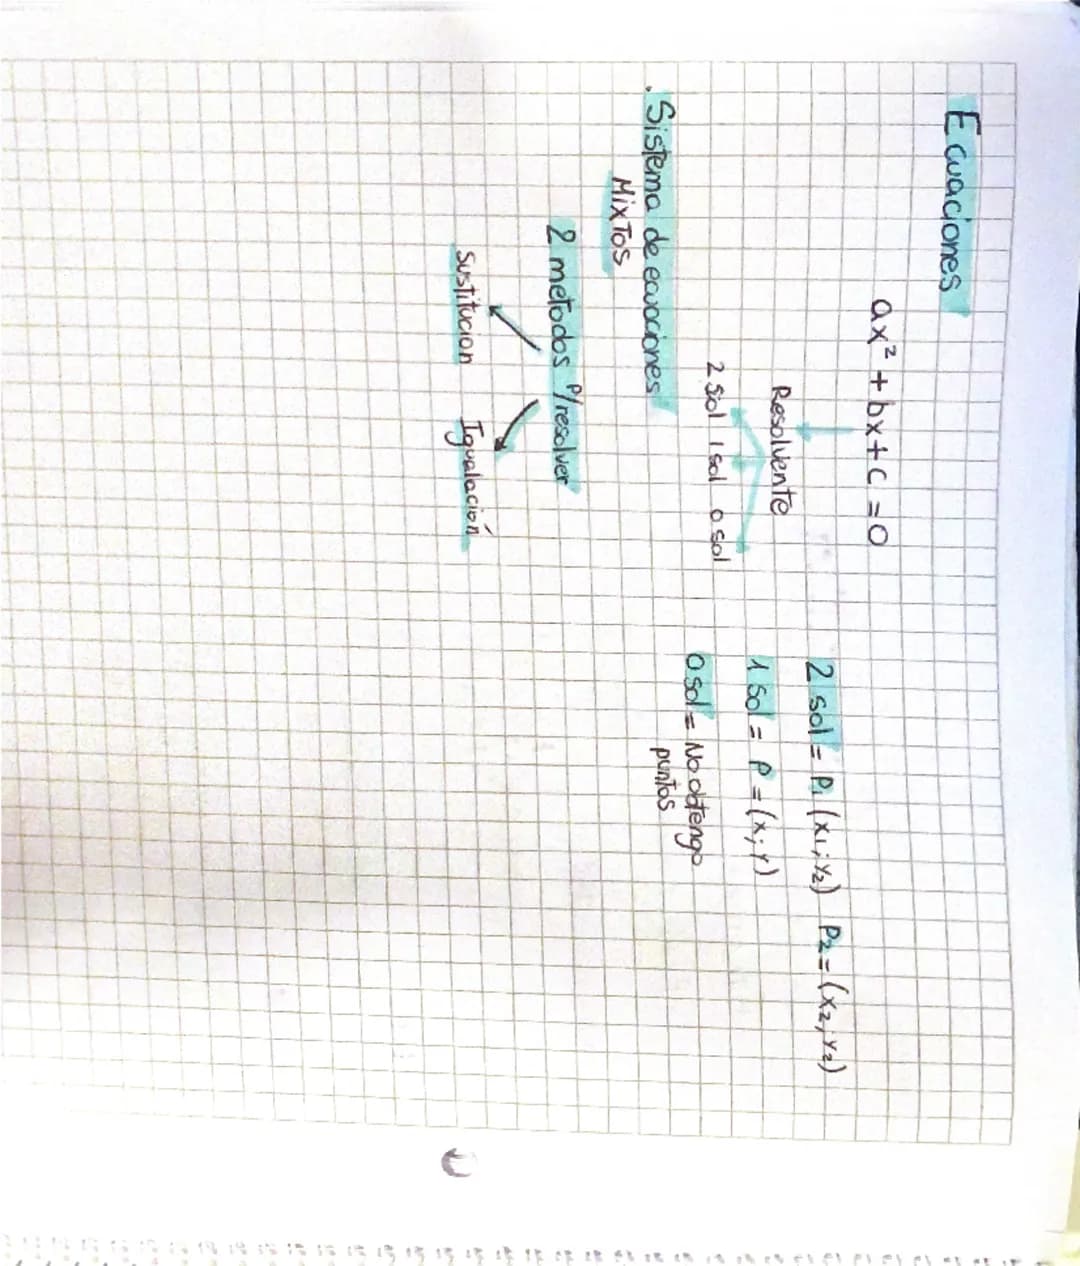 Ecuaciones
ax² + bx + c = 0
Resolvente
2 sol 1 sol 0 sol
2 sol = P₁ (x₁; y₂) P₂ = (x₂; y₂)
1 sol = P = (x; y)
0 sol = No obtengo
puntos
. Sistema de ecuaciones
Mixtos
2 metodos p/resolver
Sustitucion Igualación